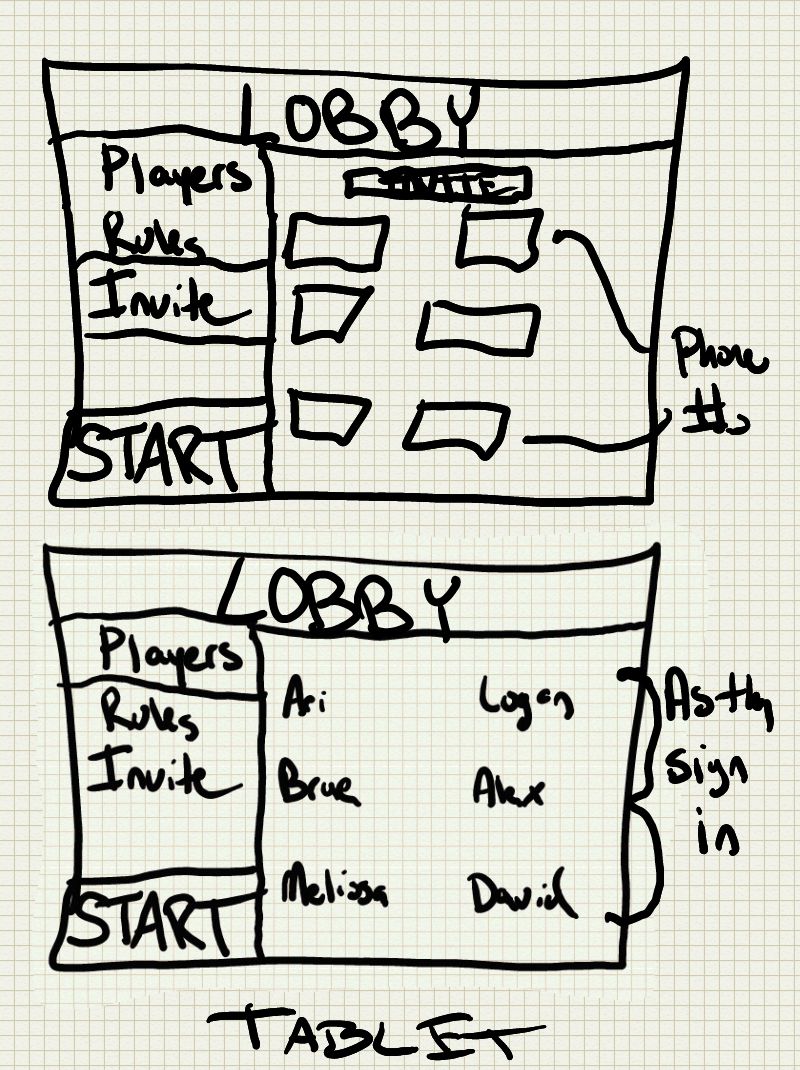 LOBBY
Players
INVITE
Rules
Invite
Phone
#s
START
LOBBY
Players
Rules
Invite
START
Ari
Logan
Brue
Alex
Melissa
David
As they
sign
in
TABLET